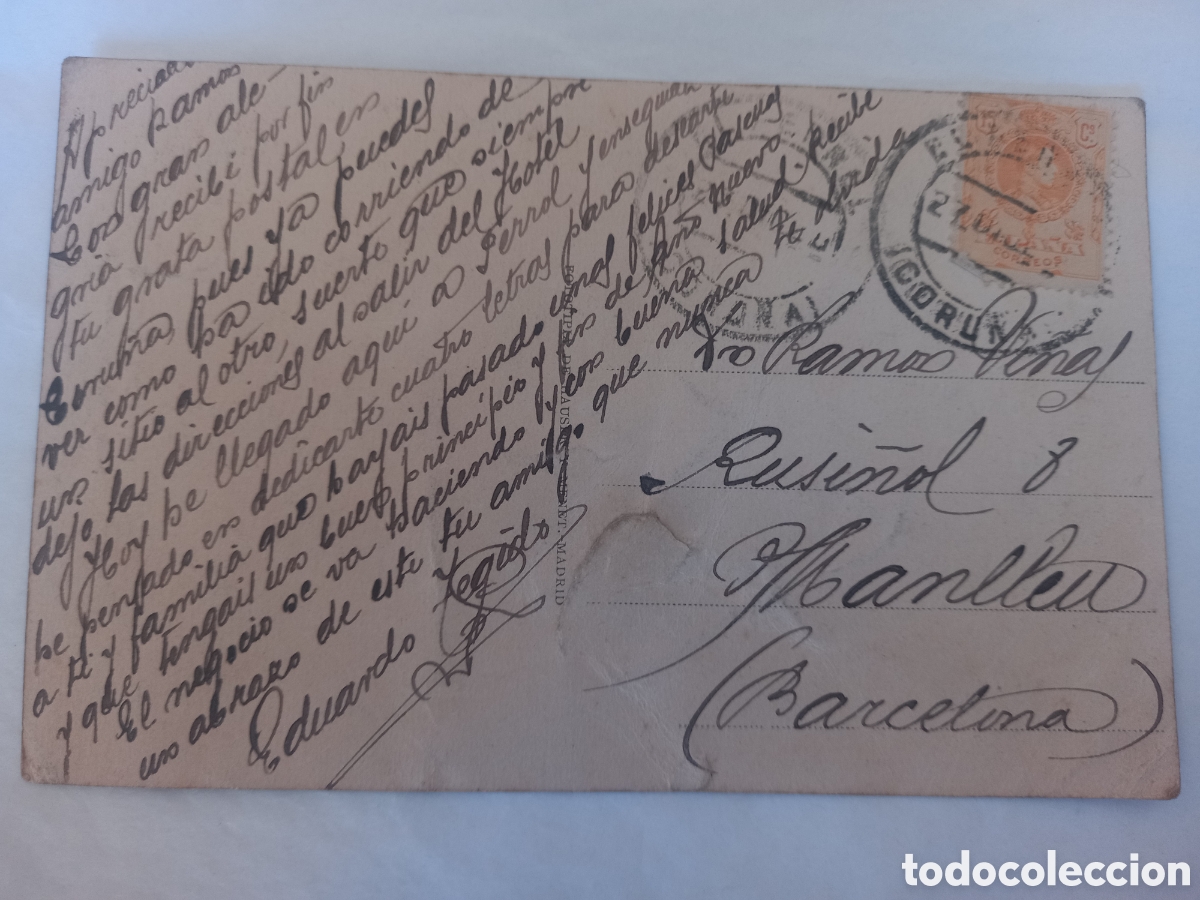 Apreciado
amigo Ramos
Con gran ale-
gria recibi por fin
tu grata postal en
Coruña pues ya puedes
ver como ha ido corriendo de
un sitio al otro, suerte que siempre
dejo las direcciones al salir del Hotel
Hoy he llegado aqui a Ferrol y enseguida
he pensado en dedicarte cuatro letras para desearte
a ti y familia que hayais pasado unas felices Pascuas
y que tengais un buen principio y fin de año nuevo
El negocio se va haciendo y con buena salud. Recibe
un abrazo de este tu amigo que nunca te olvida
Eduardo Tegido
FOTOTIPIA DE HAUSER Y MENET.-MADRID
CORREOS
CORUÑA
(CORUÑA)
Ramos Viñas
Rusiñol 8
Manlleu
(Barcelona)
todocoleccion